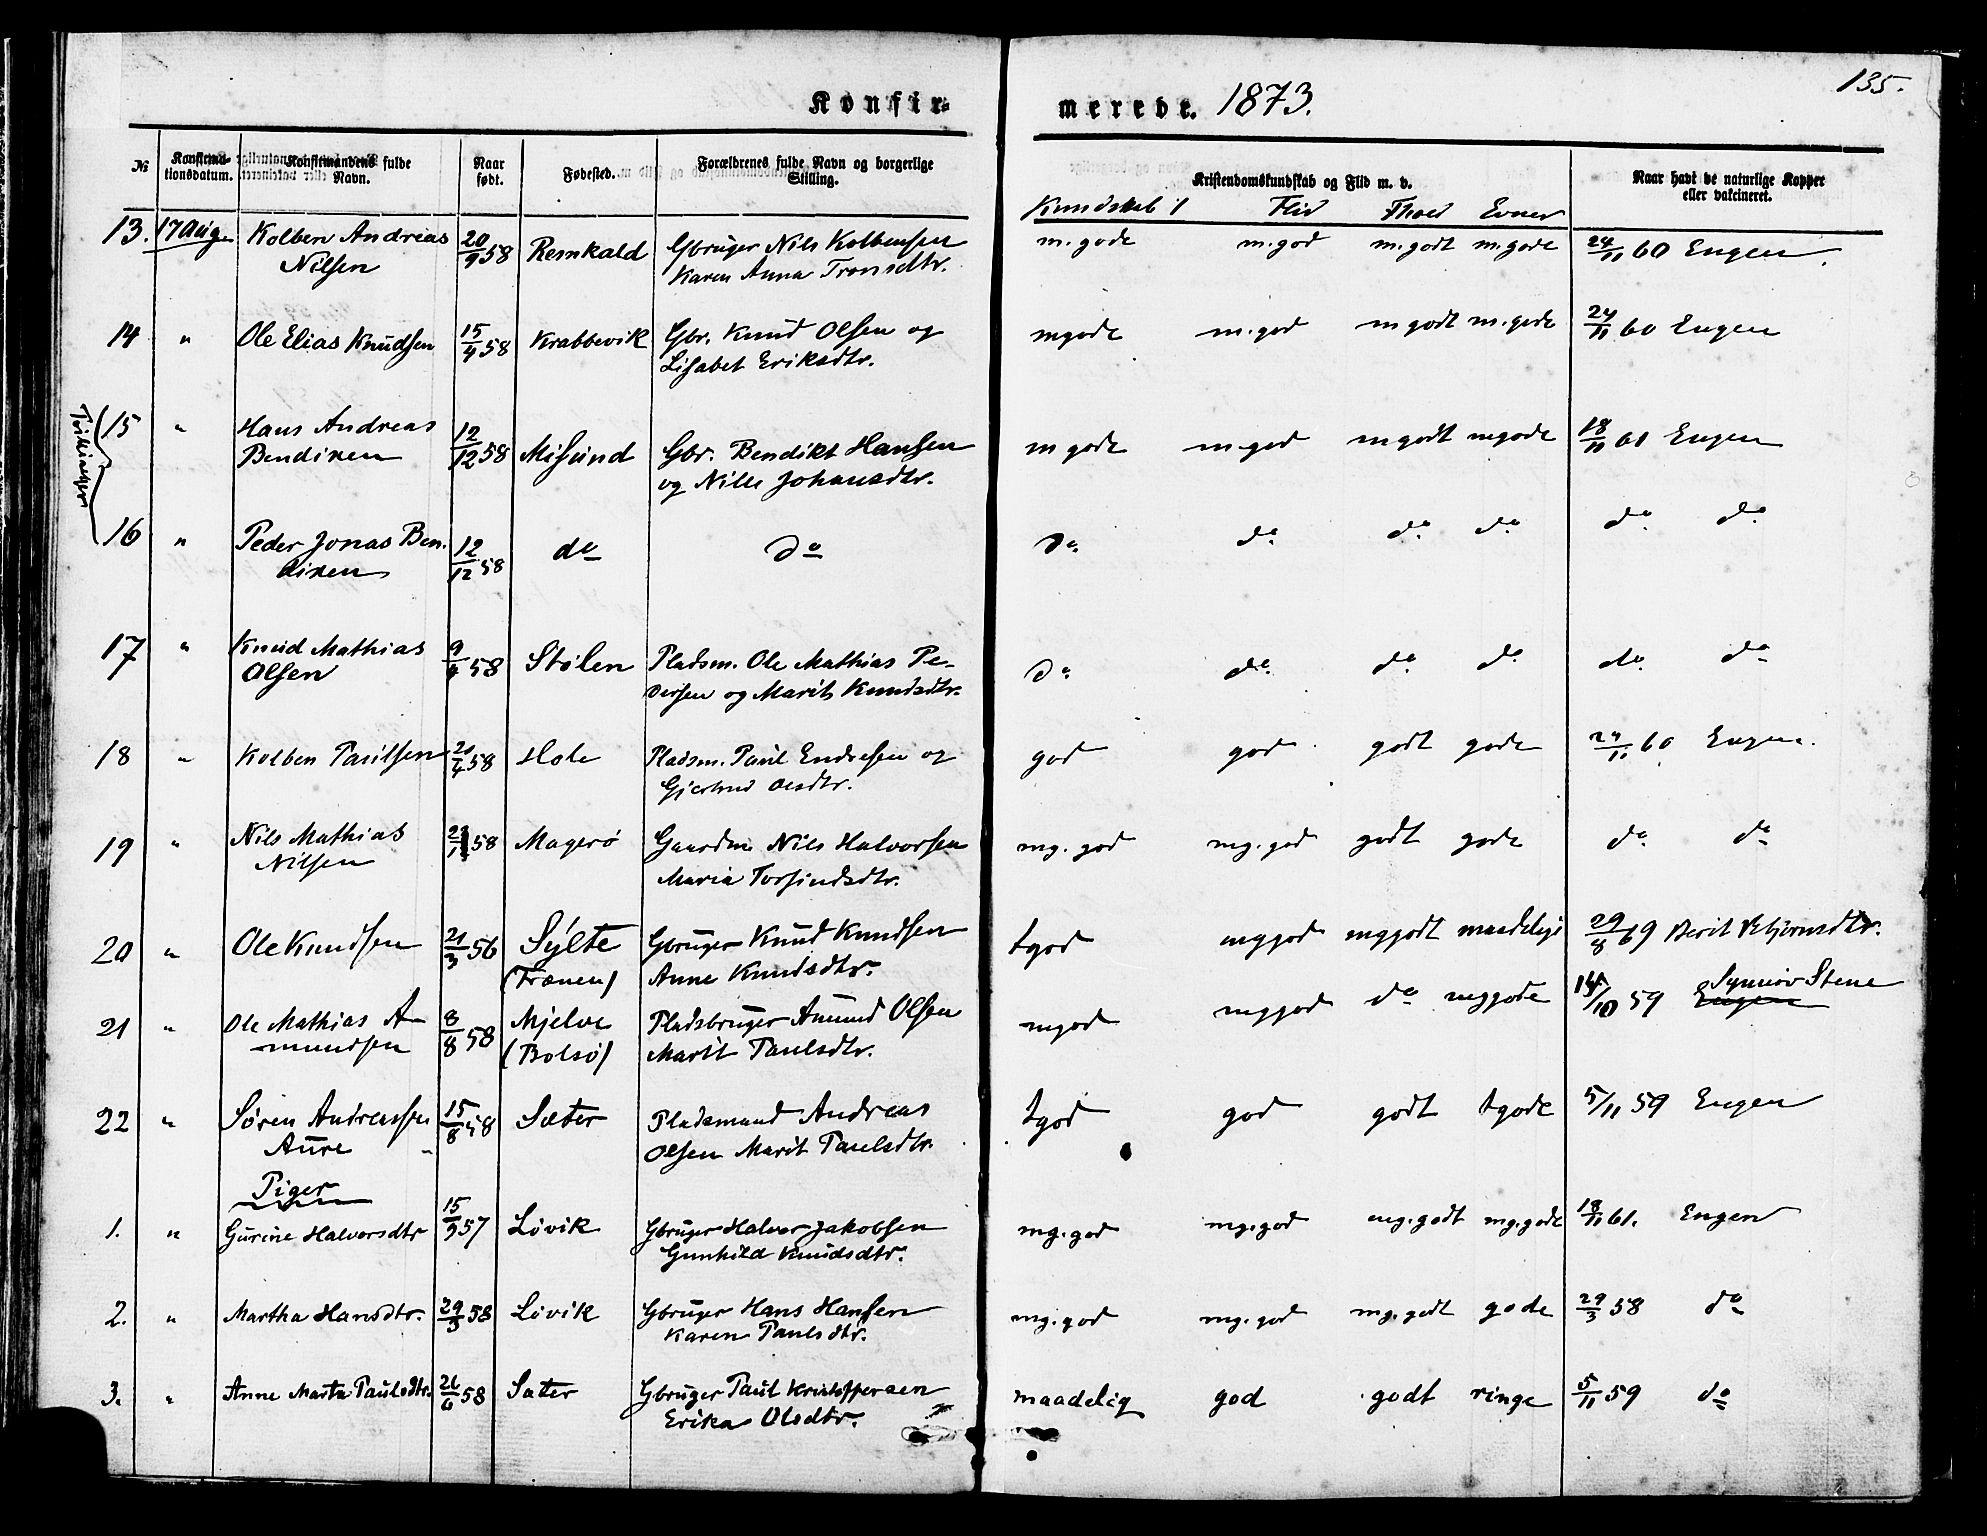 Konfir-
merede. 1873.
135.
№
Konfirma-
tionsdatum.
Konfirmandens fulde
Navn.
Naar
født.
Fødested.
Forældrenes fulde Navn og borgerlige
Stilling.
Kristendomskundskab og Flid m. v.
Naar havt de naturlige Kopper
eller vakcineret.
Kundskab Flid Evner
13. 17 Aug. Kolben Andreas 20/9 58 Gbruger Nils Kolbensen m.gode m.god m.godt m.gode 24/11 60 Engen.
Nilsen Karen Anna Tronsdtr.
14 " Ole Elias Knudsen 15/4 58 Krabbevik Gbr. Knud Olsen og mgode m.god mgodt m.gode 24/11 60 Engen
Lisabet Eriksdtr.
Tvillinger
15 " Hans Andreas 12/12 58 Misund Gbr. Bendikt Hansen m gode m.god mgodt mgode 18/11 61 Engen
Bendixen og Nille Johansdtr.
16 " Peder Jonas Ben- 12/12 58 do do do do do do do do
dixen
17 " Knud Mathias 9/4 58 Stølen Pladsm. Ole Mathias Pe- do do do do do do
Olsen dersen og Marit Knudsdtr.
18 " Kolben Paulsen 20/4 58 Hole Pladsm. Paul Endresen og god god godt gode 24/11 60 Engen.
Gjertrud Olsdtr.
19 " Nils Mathias 58 Magerø Gaardm. Nils Halvorsen mg. god mg. god godt gode do do
Nilsen Maria Torfindsdtr.
20 " Ole Knudsen 21/3 56 Sylte Gbruger Knud Knudsen tgod mggod mggodt maadelige 29/8 69 Berit
(Frænen) Anne Knudsdtr.
21 " Ole Mathias A- 8/8 58 Mjelve Pladsbruger Amund Olsen mgod mggod do mggode 14/10 59 Engen Synnøv Stene
mundsen (Bolsø) Marit Paulsdtr.
22 " Søren Andreassen 15/8 58 Sæter Pladsmand Andreas tgod god godt tgode 5/11 59 Engen
Aure Olsen Marit Paulsdtr.
Piger
1. " Gurine Halvorsdtr 15/9 57 Løvik Gbruger Halvor Jakobsen mg. god mg. god mg. godt mg. gode 18/11 61. Engen
Gunhild Knudsdtr.
2. " Martha Hansdtr. 29/3 58 Løvik Gbruger Hans Hansen mg. god mg. god mg. godt gode 29/3 58 do
Karen Paulsdtr.
3. " Anne Marta Paulsdtr. 26/6 58 Sæter Gbruger Paul Kristoffersen maadelig god godt ringe 5/11 59 do
Erika Olsdtr.